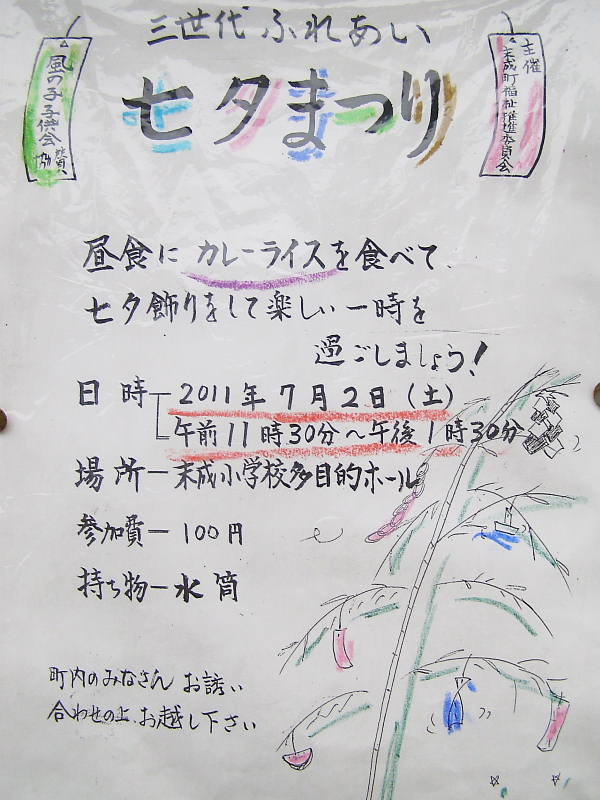 三世代ふれあい
七夕まつり
風の子子供会
協賛
主催
末成町福祉推進委員会
昼食にカレーライスを食べて、
七夕飾りをして楽しい一時を
過ごしましょう!
日時 2011年7月2日(土)
午前11時30分〜午後1時30分
場所ー末成小学校多目的ホール
参加費ー100円
持ち物ー水筒
町内のみなさん お誘い
合わせの上、お越し下さい